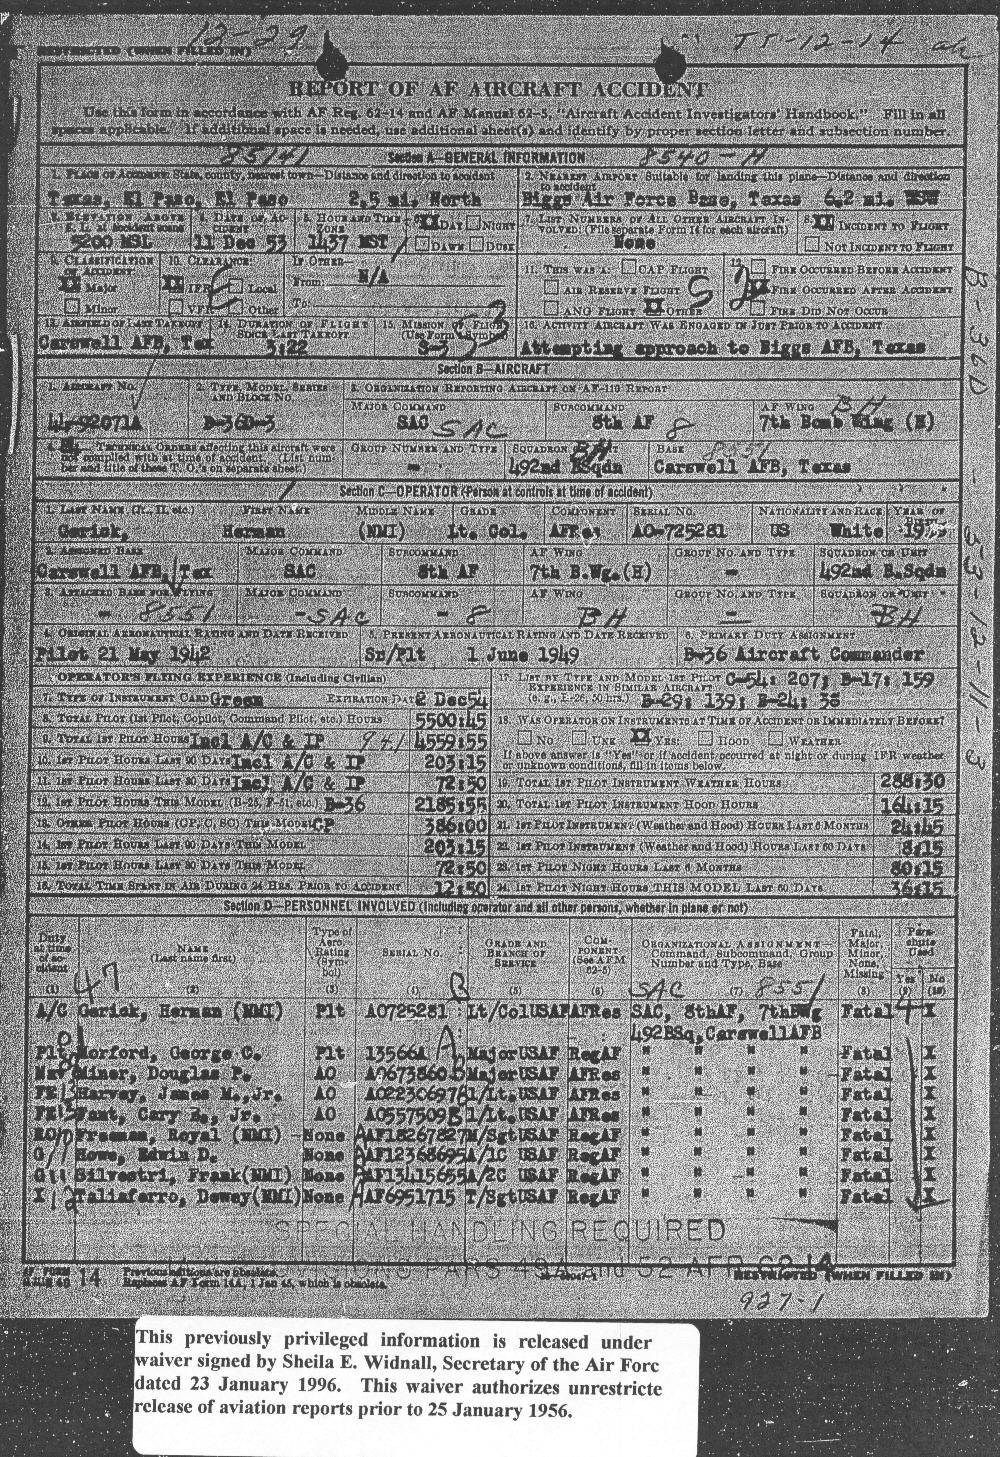 12-29
TS-12-14
RESTRICTED (WHEN FILLED IN)
REPORT OF AF AIRCRAFT ACCIDENT
Use this form in accordance with AF Reg. 62-14 and AF Manual 62-5, "Aircraft Accident Investigators' Handbook." Fill in all
spaces applicable. If additional space is needed, use additional sheet(s) and identify by proper section letter and subsection number.
85141 Section A—GENERAL INFORMATION 8540-H
1. PLACE OF ACCIDENT: State, county, nearest town—Distance and direction to accident
Texas, El Paso, El Paso 2.5 mi. North
2. NEAREST AIRPORT Suitable for landing this plane—Distance and direction to accident
Biggs Air Force Base, Texas 6.2 mi. WSW
3. ELEVATION ABOVE S. L. at accident scene
5200 MSL
4. DATE OF ACCIDENT
11 Dec 53
5. HOUR AND TIME ZONE
1437 MST
6. XX DAY NIGHT
DAWN DUSK
7. LIST NUMBERS OF ALL OTHER AIRCRAFT INVOLVED: (File separate Form 14 for each aircraft)
None
8. XX INCIDENT TO FLIGHT
NOT INCIDENT TO FLIGHT
9. CLASSIFICATION OF ACCIDENT:
XX Major
Minor
10. CLEARANCE:
XX IFR Local
VFR Other
If OTHER—
From: N/A
To:
11. THIS WAS A: CAP FLIGHT
AIR RESERVE FLIGHT
ANG FLIGHT XX OTHER
12. FIRE OCCURRED BEFORE ACCIDENT
XX FIRE OCCURRED AFTER ACCIDENT
FIRE DID NOT OCCUR
13. AIRFIELD OF LAST TAKEOFF
Carswell AFB, Tex
14. DURATION OF FLIGHT SINCE LAST TAKEOFF
3:22
15. MISSION OF FLIGHT (Use Form Symbol)
S-5
16. ACTIVITY AIRCRAFT WAS ENGAGED IN JUST PRIOR TO ACCIDENT
Attempting approach to Biggs AFB, Texas
Section B—AIRCRAFT
1. AIRCRAFT NO.
44-92071A
2. TYPE, MODEL, SERIES AND BLOCK NO.
B-36D-3
3. ORGANIZATION REPORTING AIRCRAFT ON AF-110 REPORT
MAJOR COMMAND
SAC SAC
SUBCOMMAND
8th AF 8
AF WING
7th Bomb Wing (H) BH
4. TECHNICAL ORDERS affecting this aircraft were not complied with at time of accident. (List number and title of these T. O.'s on separate sheet.)
GROUP NUMBER AND TYPE
-
SQUADRON
492nd BSqdn BH
BASE
Carswell AFB, Texas 8551
Section C—OPERATOR (Person at controls at time of accident)
1. LAST NAME (Jr., II, etc.) FIRST NAME MIDDLE NAME GRADE COMPONENT SERIAL NO. NATIONALITY AND RACE YEAR OF
Gerick, Herman (NMI) Lt. Col. AFRes AO-725281 US White
2. ASSIGNED BASE MAJOR COMMAND SUBCOMMAND AF WING GROUP NO. AND TYPE SQUADRON OR UNIT
Carswell AFB, Tex SAC 8th AF 7th B.Wg.(H) - 492nd B.Sqdn
3. ATTACHED BASE FOR FLYING MAJOR COMMAND SUBCOMMAND AF WING GROUP NO. AND TYPE SQUADRON OR UNIT
- 8551 -SAC - 8 BH - BH
4. ORIGINAL AERONAUTICAL RATING AND DATE RECEIVED
Pilot 21 May 1942
5. PRESENT AERONAUTICAL RATING AND DATE RECEIVED
Sr/Plt 1 June 1949
6. PRIMARY DUTY ASSIGNMENT
B-36 Aircraft Commander
OPERATOR'S FLYING EXPERIENCE (Including Civilian)
7. TYPE OF INSTRUMENT CARD Green EXPIRATION DATE 2 Dec 54
8. TOTAL PILOT (1st Pilot, Copilot, Command Pilot, etc.) HOURS 5500:45
9. TOTAL 1ST PILOT HOURS Incl A/C & IP 941 4559:55
10. 1ST PILOT HOURS LAST 90 DAYS Incl A/C & IP 203:15
11. 1ST PILOT HOURS LAST 30 DAYS Incl A/C & IP 72:50
12. 1ST PILOT HOURS THIS MODEL (B-25, F-51, etc.) B-36 2185:55
13. OTHER PILOT HOURS (CP, C, SC) THIS MODEL CP 386:00
14. 1ST PILOT HOURS LAST 90 DAYS THIS MODEL 203:15
15. 1ST PILOT HOURS LAST 30 DAYS THIS MODEL 72:50
16. TOTAL TIME SPENT IN AIR DURING 24 HRS. PRIOR TO ACCIDENT 12:50
17. LIST BY TYPE AND MODEL 1ST PILOT EXPERIENCE IN SIMILAR AIRCRAFT (e. g., L-26, 50 hrs.) C-54: 207; B-17: 159
B-29: 139; B-24: 38
18. WAS OPERATOR ON INSTRUMENTS AT TIME OF ACCIDENT OR IMMEDIATELY BEFORE?
NO UNK XX YES: HOOD WEATHER
If above answer is "Yes" or if accident occurred at night or during IFR weather
or unknown conditions, fill in items below.
19. TOTAL 1ST PILOT INSTRUMENT WEATHER HOURS 288:30
20. TOTAL 1ST PILOT INSTRUMENT HOOD HOURS 164:15
21. 1ST PILOT INSTRUMENT (Weather and Hood) HOURS LAST 6 MONTHS 24:45
22. 1ST PILOT INSTRUMENT (Weather and Hood) HOURS LAST 60 DAYS 8:15
23. 1ST PILOT NIGHT HOURS LAST 6 MONTHS 80:15
24. 1ST PILOT NIGHT HOURS THIS MODEL LAST 60 DAYS 36:15
Section D—PERSONNEL INVOLVED (Including operator and all other persons, whether in plane or not)
Duty at time of accident (1)
NAME (Last name first) (2)
Type of Aero. Rating (Symbol) (3)
SERIAL NO. (4)
GRADE AND BRANCH OF SERVICE (5)
COMPONENT (See AFM 62-5) (6)
ORGANIZATIONAL ASSIGNMENT—Command, Subcommand, Group Number and Type, Base (7)
Fatal, Major, Minor, None, Missing (8)
Parachute Used Yes (9) No (10)
47 B SAC 8551
A/C Gerick, Herman (NMI) Plt AO725281 Lt/ColUSAF AFRes SAC, 8thAF, 7thBWg Fatal X
492BSq,CarswellAFB
Plt Morford, George C. Plt 13566A MajorUSAF RegAF " " " " Fatal X
Nav Miner, Douglas P. AO AO673860 MajorUSAF AFRes " " " " Fatal X
FE Harvey, James M.,Jr. AO AO2230697 1/Lt.USAF AFRes " " " " Fatal X
FE Fant, Cary B., Jr. AO AO557509 1/Lt.USAF AFRes " " " " Fatal X
RO Freeman, Royal (NMI) None AF18267827 M/SgtUSAF RegAF " " " " Fatal X
G Howe, Edwin D. None AF12368695 A/1C USAF RegAF " " " " Fatal X
G Silvestri, Frank(NMI) None AF13415655 A/2C USAF RegAF " " " " Fatal X
X Taliaferro, Dewey(NMI) None AF6951715 T/SgtUSAF RegAF " " " " Fatal X
SPECIAL HANDLING REQUIRED
PARS 49A and 52 AFR 62-14
AF FORM 14 Previous editions are obsolete.
Replaces AF Form 14A, 1 Jan 45, which is obsolete.
RESTRICTED (WHEN FILLED IN)
927-1
B-36D-53-12-11-3
This previously privileged information is released under
waiver signed by Sheila E. Widnall, Secretary of the Air Forc
dated 23 January 1996. This waiver authorizes unrestricte
release of aviation reports prior to 25 January 1956.